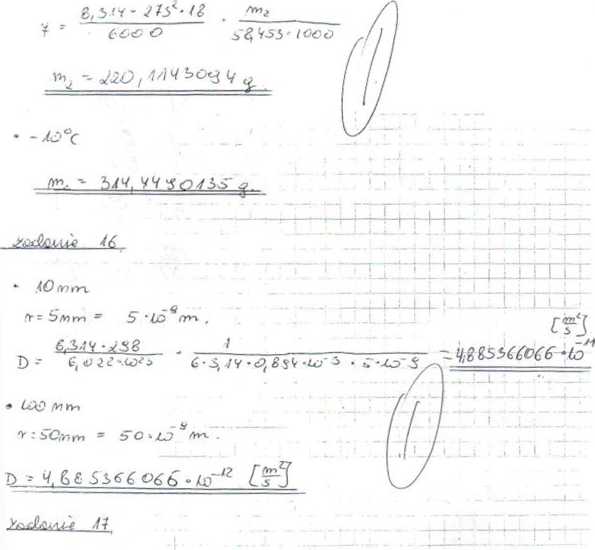 7 = 8,314 · 273² · 18 / 6000 · m₂ / 58,453 · 1000
m₂ = 220,1143094 g.
• -10°C
m₂ = 314,4490135 g.
zadanie 16.
• 10 nm
r = 5nm = 5 · 10⁻⁹ m.
D = 8,314 · 298 / 6,022 · 10²³ · 1 / 6 · 3,14 · 0,894 · 10⁻³ · 5 · 10⁻⁹ = 4,885366066 · 10⁻¹¹ [m²/s]
• 100 nm
r = 50nm = 50 · 10⁻⁹ m.
D = 4,885366066 · 10⁻¹² [m²/s]
zadanie 17.